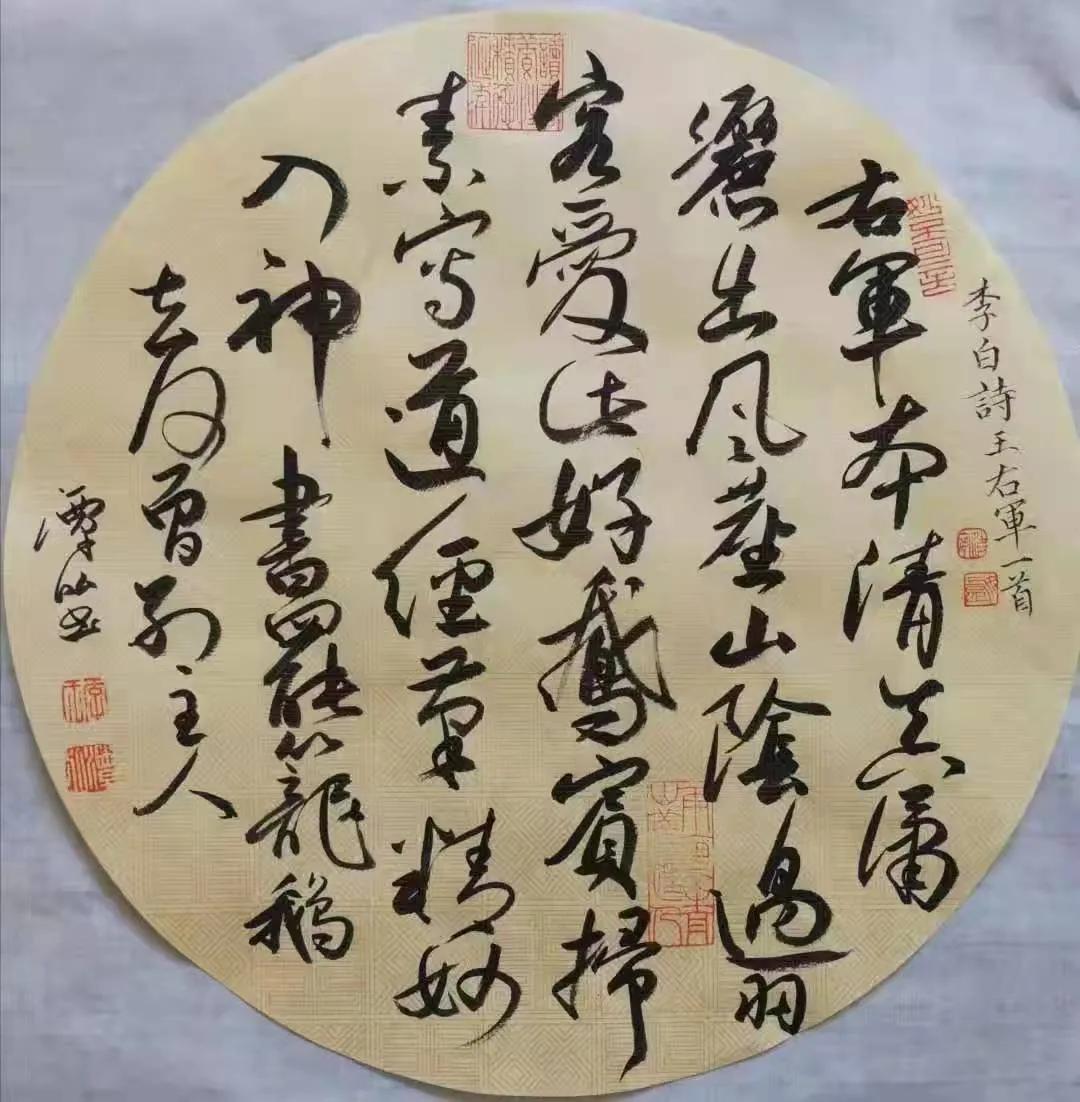 李白詩王右軍一首
右軍本清真瀟
灑出風塵山陰過羽
客愛此好鵝賓掃
素寫道經筆精妙
入神書罷籠鵝
去何曾別主人